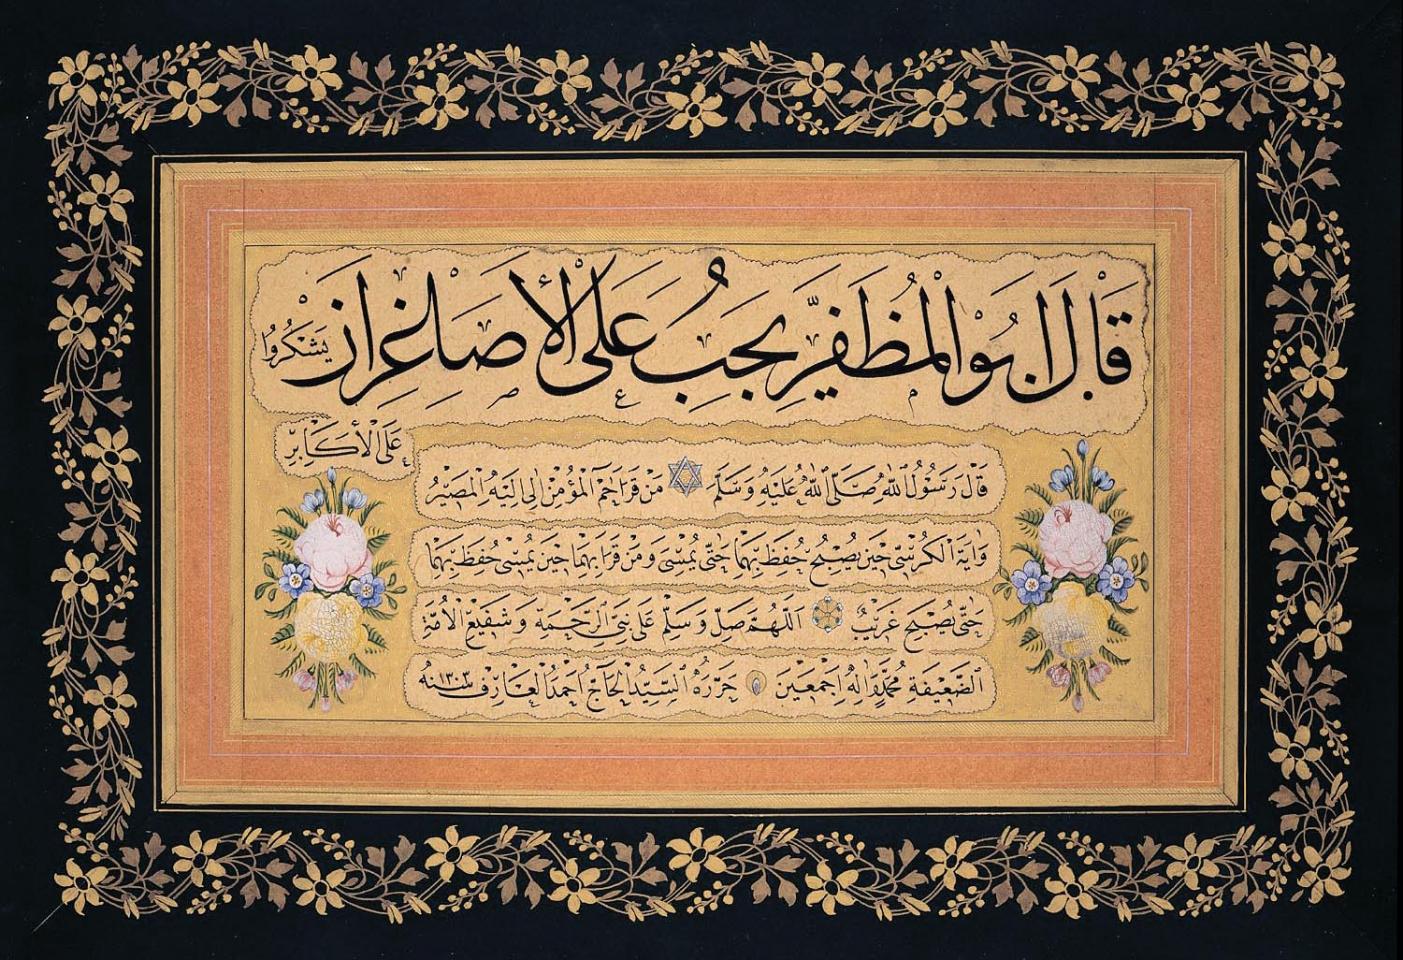 قَالَ اَبُو الْمُظَفَّرِ يَجِبُ عَلَى الْأَصَاغِرِ اَنْ يَشْكُرُوا
عَلَى الْأَكَابِرِ
قَالَ رَسُولُ اللّٰهِ صَلَّى اللّٰهُ عَلَيْهِ وَسَلَّمَ مَنْ قَرَأَ حٰم الْمُؤْمِنَ اِلَى اِلَيْهِ الْمَصِيْرُ
وَاٰيَةَ الْكُرْسِيِّ حِيْنَ يُصْبِحُ حُفِظَ بِهِمَا حَتّٰى يُمْسِيَ وَمَنْ قَرَأَ بِهِمَا حِيْنَ يُمْسِي حُفِظَ بِهِمَا
حَتّٰى يُصْبِحَ غَرِيْبٌ اَللّٰهُمَّ صَلِّ وَسَلِّمْ عَلَى نَبِيِّ الرَّحْمَةِ وَشَفِيْعِ الْاُمَّةِ
الضَّعِيْفَةِ مُحَمَّدٍ وَاٰلِهِ اَجْمَعِيْنَ حَرَّرَهُ السَّيِّدُ الْحَاجُّ اَحْمَدُ الْعَارِف سنه ١٣٠٣